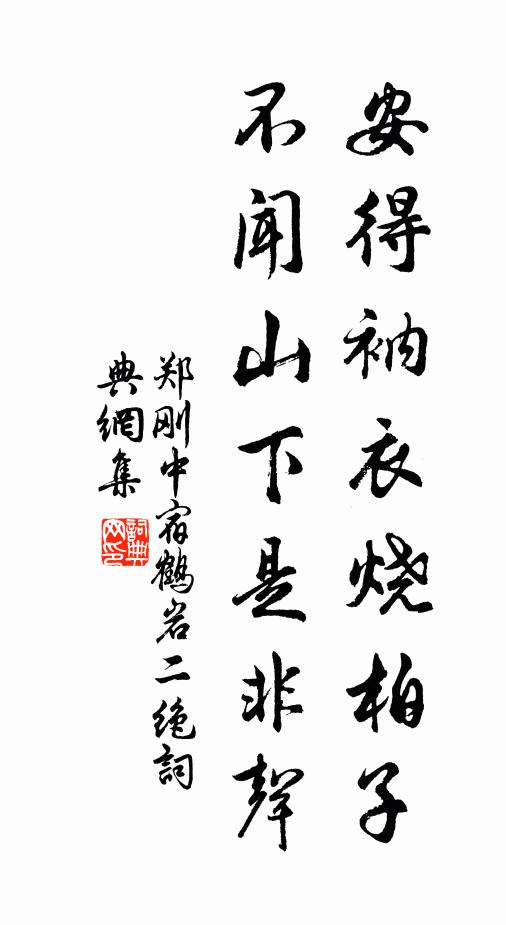 安得衲衣烧柏子
不闻山下是非聲
郑刚中宿鹤岩二绝詞
典網集
詞典网印